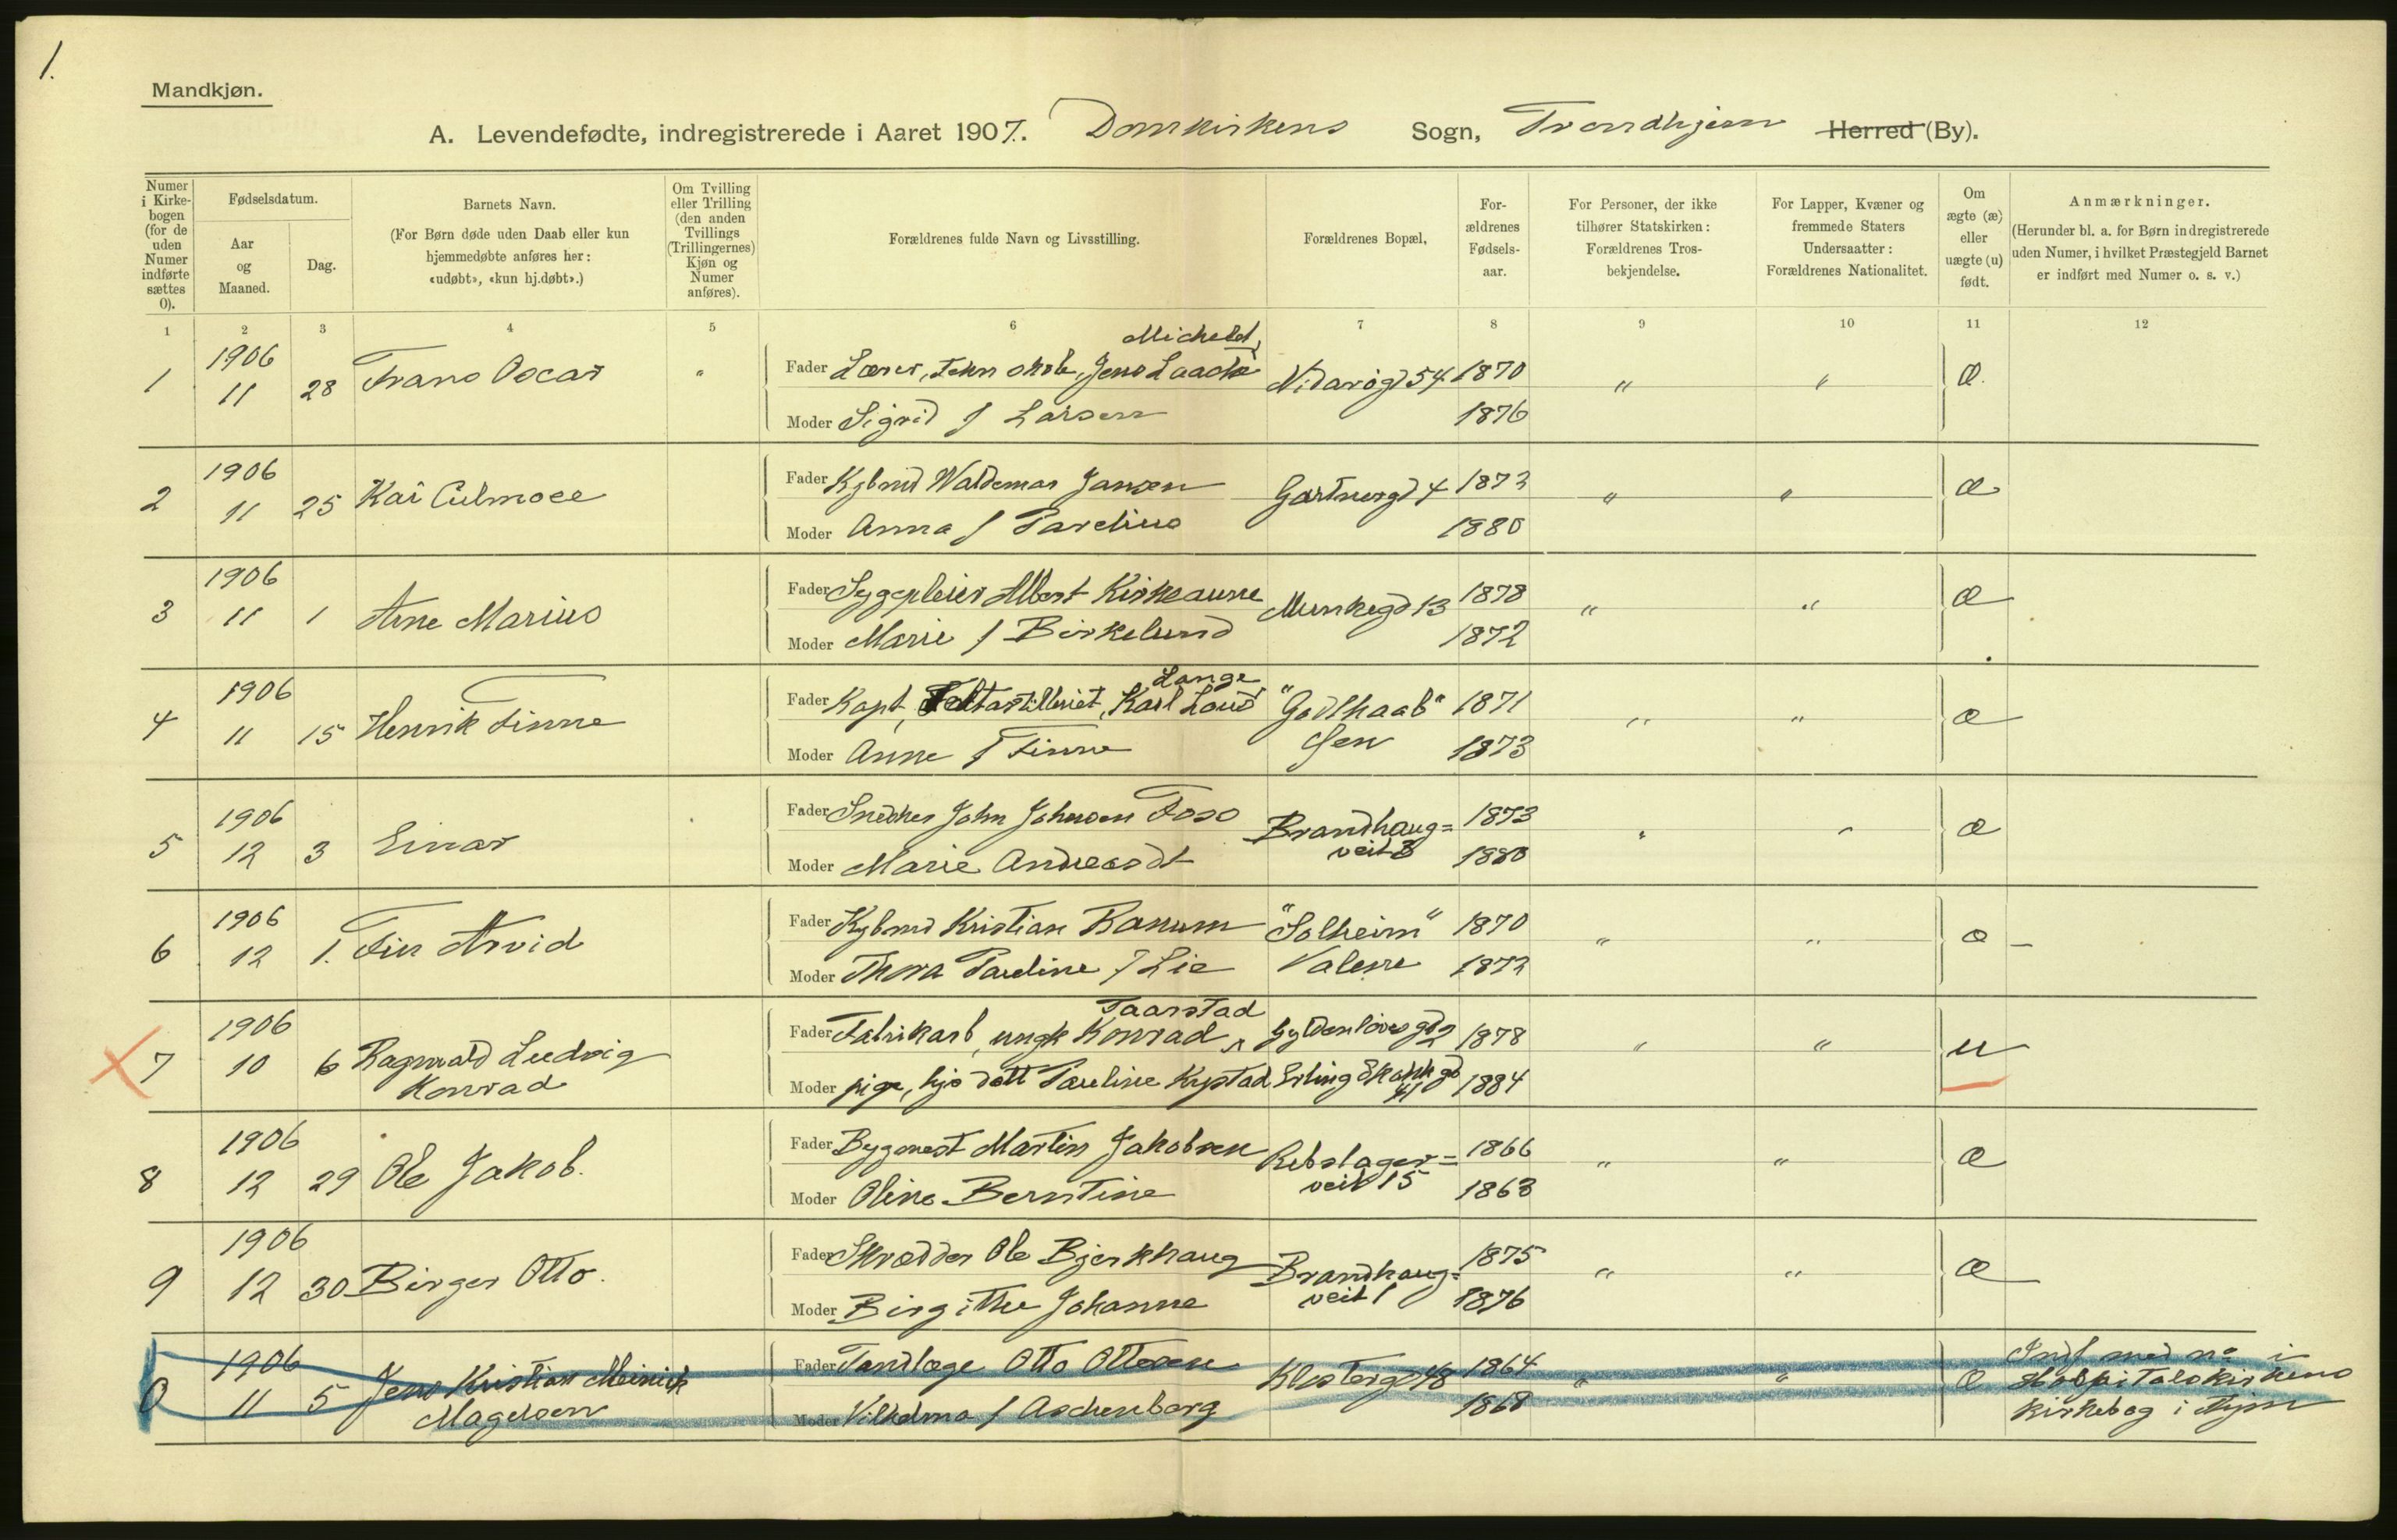 1.
Mandkjøn.
A. Levendefødte, indregistrerede i Aaret 1907. Domkirkens Sogn, Trondhjem Herred (By).
Numer i Kirkebogen (for de uden Numer indførte sættes 0).
Fødselsdatum.
Aar og Maaned.
Dag.
Barnets Navn.
(For Børn døde uden Daab eller kun hjemmedøbte anføres her: «udøbt», «kun hj.døbt».)
Om Tvilling eller Trilling (den anden Tvillings (Trillingernes) Kjøn og Numer anføres).
Forældrenes fulde Navn og Livsstilling.
Forældrenes Bopæl,
Forældrenes Fødselsaar.
For Personer, der ikke tilhører Statskirken: Forældrenes Trosbekjendelse.
For Lapper, Kvæner og fremmede Staters Undersaatter: Forældrenes Nationalitet.
Om ægte (æ) eller uægte (u) født.
Anmærkninger.
(Herunder bl. a. for Børn indregistrerede uden Numer, i hvilket Præstegjeld Barnet er indført med Numer o. s. v.)
1 2 3 4 5 6 7 8 9 10 11 12
1 1906 11 28 Frans Oscar " Fader Lærer, tekn skole, Jens Michelet Laache Nidarøgd 54 1870 " " æ.
Moder Sigrid f Larsen 1876
2 1906 11 25 Kai Culmoee Fader Kjbmd Waldemar Jansen Gartnergd 4 1873 " " æ
Moder Anna f Parelius 1880
3 1906 11 1 Arne Marius Fader Sygepleier Albert Kirkeaune Munkegd 13 1878 " " æ
Moder Marie f Birkelund 1872
4 1906 11 15 Henrik Finne Fader Kapt, Feltartilleriet, Karl Lange "Godthaab" 1871 " " æ
Moder Anne f Finne 1873
5 1906 12 3 Einar Fader Snedker John Johnsen Foso Brandhaug= 1873 " " æ
Moder Marie Andreasdt veit 3 1880
6 1906 12 1. Fin Arvid Fader Kjbmd Kristian Banum "Solheim" 1870 " " æ –
Moder Thora Pauline f Lie Valene 1872
7 1906 10 6 Ragnvald Ludvig Konrad Fader Fabrikarb, ungk Konrad Taarstad Gyldenløves gd 2 1878 " " u
Moder pige, hjv datt Pauline Kystad Erling Skakk gd 41 1884
8 1906 12 29 Ole Jakob. Fader Bygmest Martin Jakobsen Rebslager= 1866 " " æ
Moder Oline Berntine veit 15 1863
9 1906 12 30 Birger Otto. Fader Skrædder Ole Bjerkhaug Brandhaug= 1875 " " æ
Moder Birgitte Johanne veit 1 1876
0 1906 11 5 Jens Kristian Meinich Magelssen Fader Tandlæge Otto Ottesen Klostergd 48 1864 " " æ Indf med no i
Moder Vilhelma f Aschenberg 1868 Hospitalskirkens
kirkebog i Thjem